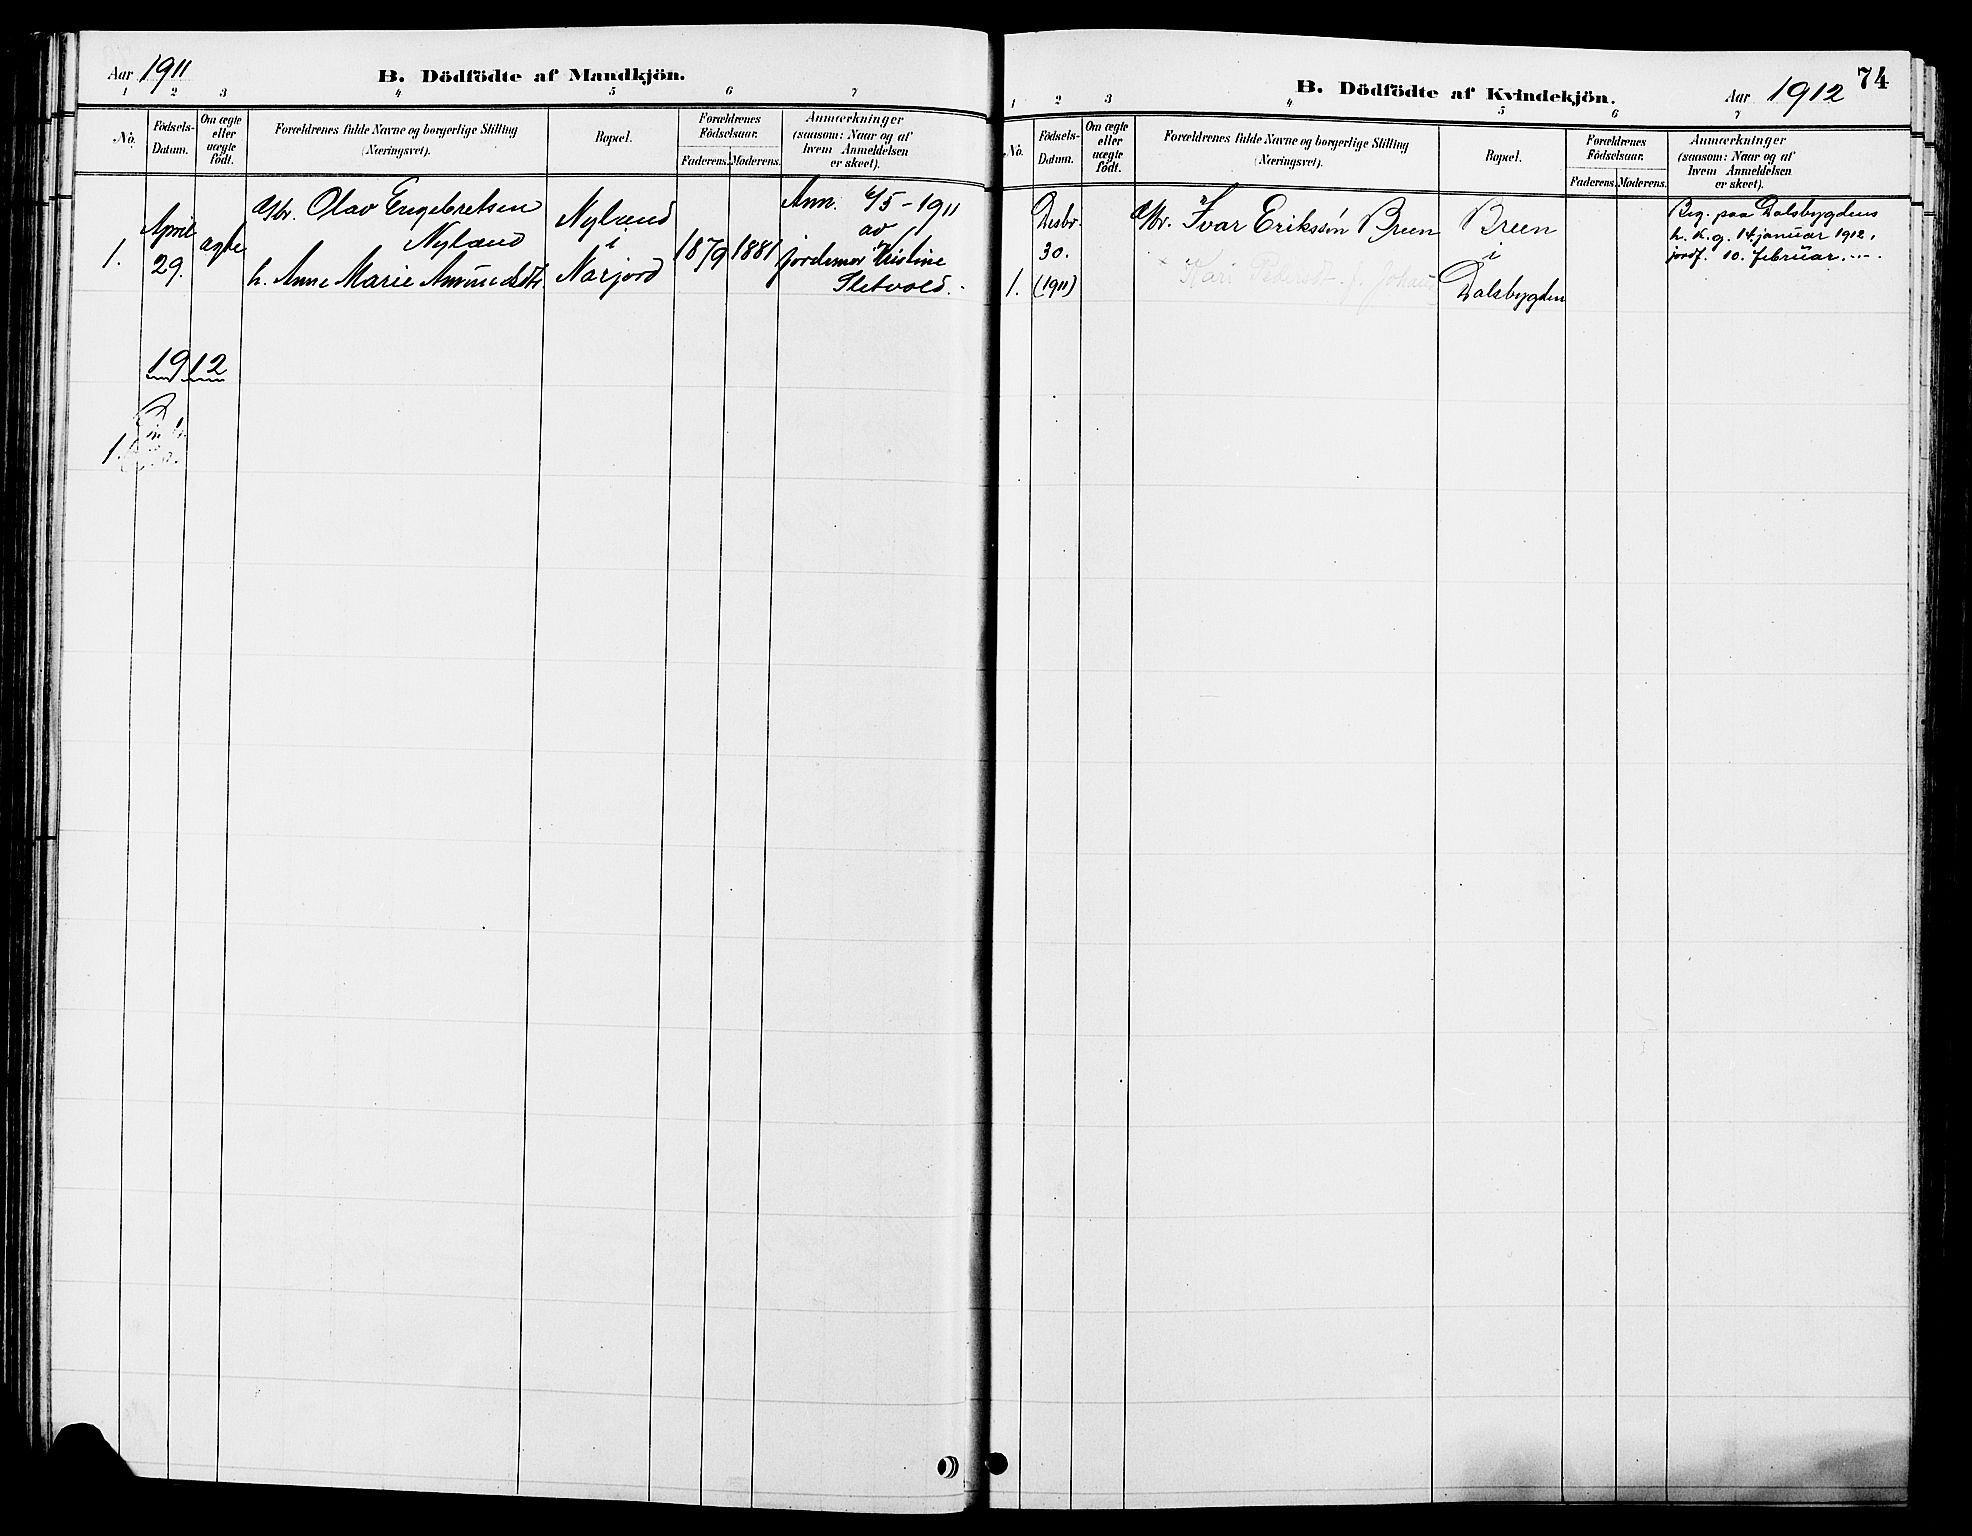 Aar 1911
B. Dödfödte af Mandkjön.
1 2 3 4 5 6 7
No.
Födsels-
Datum.
Om ægte
eller
uægte
födt.
Forældrenes fulde Navne og borgerlige Stilling
(Næringsvei).
Bopæl.
Forældrenes
Födselsaar.
Faderens. Moderens.
Anmærkninger
(saasom: Naar og af
hvem Anmeldelsen
er skeet).
1.
April
29.
ægte
Gbr. Olav Engebretsen
Nyland
h. Anne Marie Amundsdtr
Nyland
i
Narjord
1879 1881
Ann. 6/5-1911
av
jordemor Kristine
Sletvold.
1912
1.
74
B. Dödfödte af Kvindekjön.
Aar 1912
1 2 3 4 5 6 7
No.
Födsels-
Datum.
Om ægte
eller
uægte
födt.
Forældrenes fulde Navne og borgerlige Stilling
(Næringsvei).
Bopæl.
Forældrenes
Födselsaar.
Faderens. Moderens.
Anmærkninger
(saasom: Naar og af
hvem Anmeldelsen
er skeet).
1.
Desbr.
30.
(1911)
Gbr. Ivar Eriksen Breen
Kari Pedersdt. f. Johan
Breen
i
Dalsbygden
Beg. paa Dalsbygdens
h. k. g. 14 januar 1912,
jordf. 10. februar. --.